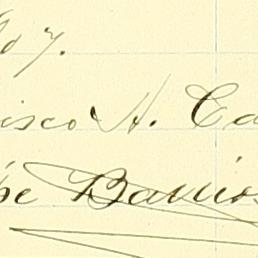 07.
isco H. Ca
pe Barrios